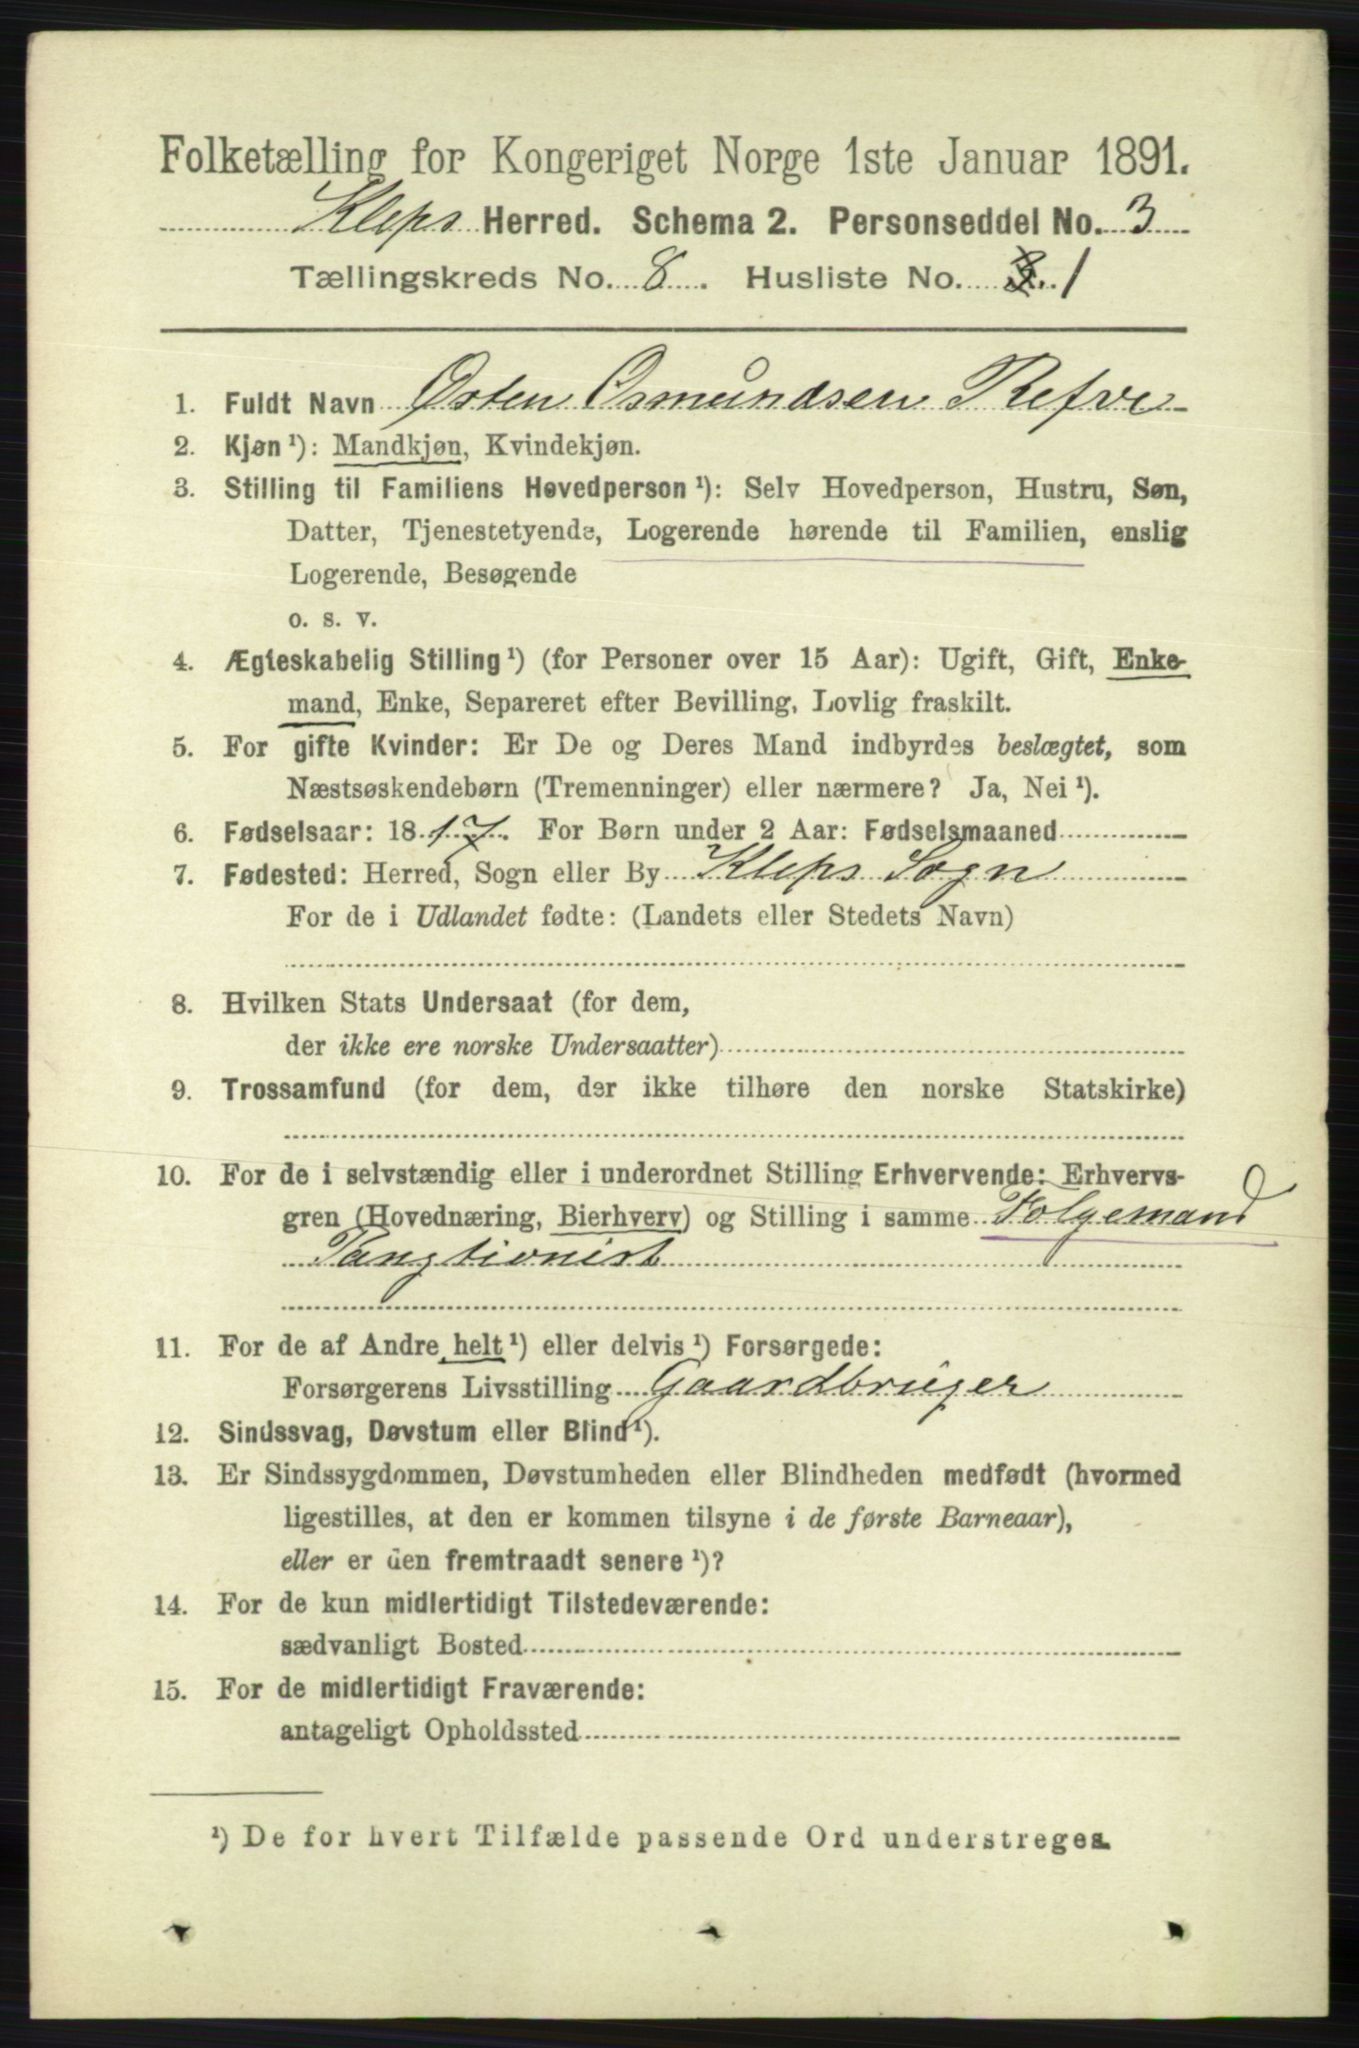 Folketælling for Kongeriget Norge 1ste Januar 1891.
Kleps Herred. Schema 2. Personseddel No. 3
Tællingskreds No. 8. Husliste No. 1
1. Fuldt Navn Østen Osmundsen Refve
2. Kjøn ¹): Mandkjøn, Kvindekjøn.
3. Stilling til Familiens Hovedperson ¹): Selv Hovedperson, Hustru, Søn,
Datter, Tjenestetyende, Logerende hørende til Familien, enslig
Logerende, Besøgende
o. s. v.
4. Ægteskabelig Stilling ¹) (for Personer over 15 Aar): Ugift, Gift, Enke-
mand, Enke, Separeret efter Bevilling, Lovlig fraskilt.
5. For gifte Kvinder: Er De og Deres Mand indbyrdes beslægtet, som
Næstsøskendebørn (Tremenninger) eller nærmere? Ja, Nei ¹).
6. Fødselsaar: 1817. For Børn under 2 Aar: Fødselsmaaned
7. Fødested: Herred, Sogn eller By Kleps Sogn
For de i Udlandet fødte: (Landets eller Stedets Navn)
8. Hvilken Stats Undersaat (for dem,
der ikke ere norske Undersaatter)
9. Trossamfund (for dem, der ikke tilhøre den norske Statskirke)
10. For de i selvstændig eller i underordnet Stilling Erhvervende: Erhvervs-
gren (Hovednæring, Bierhverv) og Stilling i samme Folgemand
Pangtionist
11. For de af Andre helt ¹) eller delvis ¹) Forsørgede:
Forsørgerens Livsstilling Gaardbruger
12. Sindssvag, Døvstum eller Blind ¹).
13. Er Sindssygdommen, Døvstumheden eller Blindheden medfødt (hvormed
ligestilles, at den er kommen tilsyne i de første Barneaar),
eller er den fremtraadt senere ¹)?
14. For de kun midlertidigt Tilstedeværende:
sædvanligt Bosted
15. For de midlertidigt Fraværende:
antageligt Opholdssted
¹) De for hvert Tilfælde passende Ord understreges.